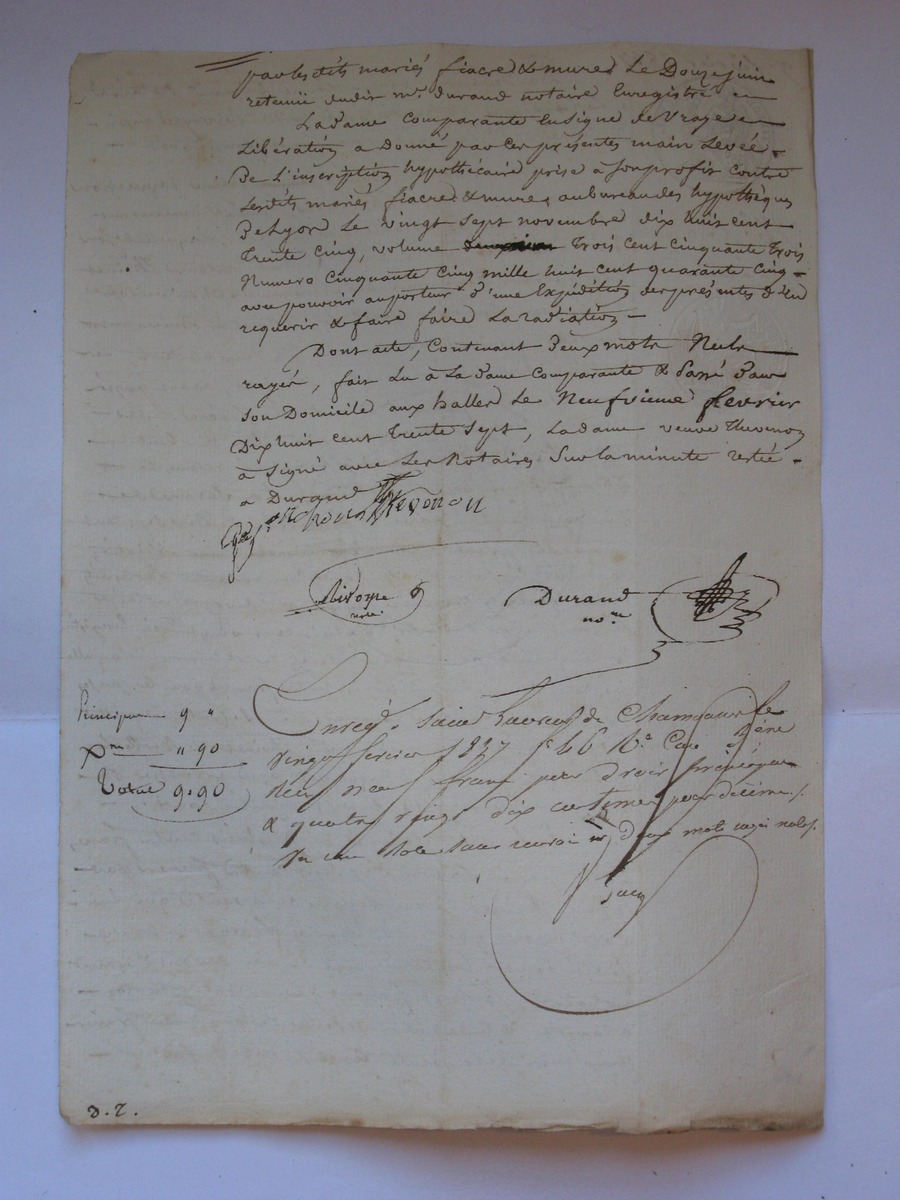 par lesdits mariés fiacre & mure, Le Douze juin
retenue dudit me. durand notaire Enregistré
La dame comparante En signe de Vraye
Libération a Donné par Ces présentes main Levée
De L'inscription hypothécaire prise a son profit Contre
Lesdits mariés fiacre & mure, au bureau des hypothèques
De Lyon Le vingt sept novembre dix huit cent
trente cinq, volume trois cent cinquante trois
Numero cinquante cinq mille huit cent quarante cinq
avec pouvoir au porteur d'une Expédition des présentes d'En
requerir & faire faire La radiation
Dont acte, Contenant Deux mots Nuls
rayés, fait Lu à La dame Comparante & Passé Dans
son Domicile aux halles Le Neufvieme fevrier
Dix huit cent trente sept, La dame veuve thevenon
à signé avec Les Notaires sur La minute restée
a Durand
Thevenon
notre.
Durand
nore.
Principal 9 "
Xme " 90
Total 9.90
Enregé. à Saint Laurent de Chamousset le
vingt fevrier 1837 fo. 46 Ro. Case
Reçu neuf francs pour droit principal
& quatre vingt dix centimes pour décime
deux mots rayés nuls
D. T.